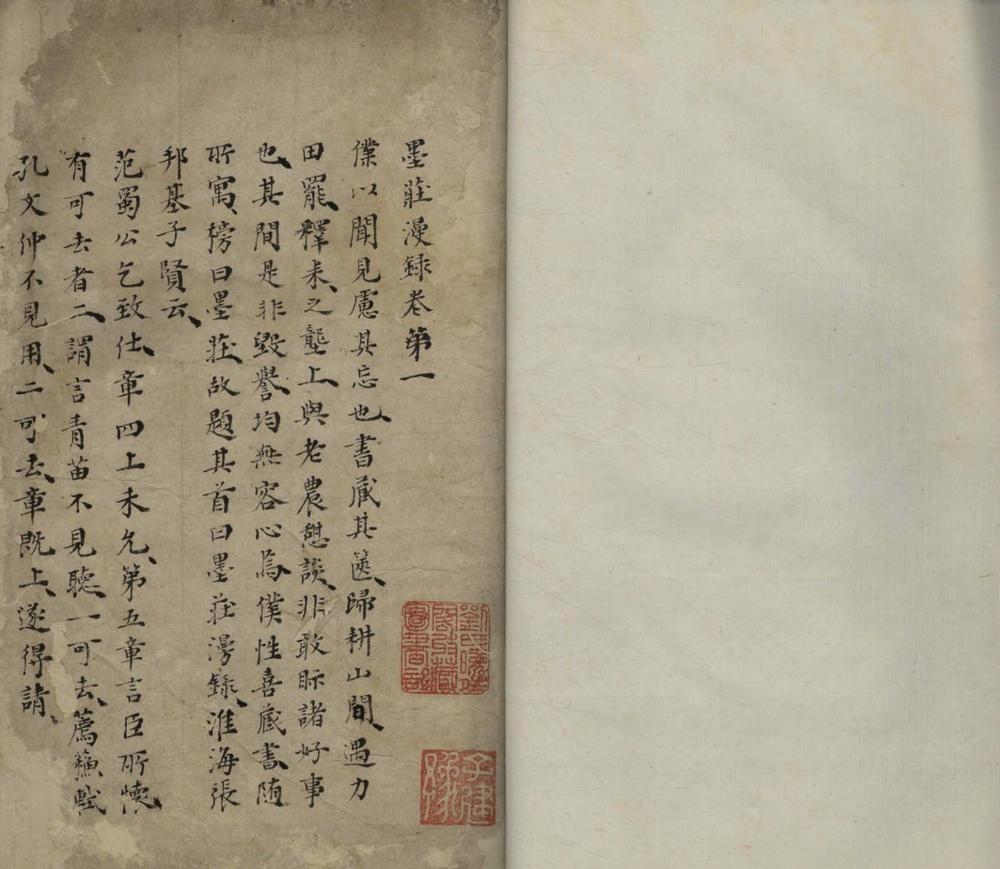 墨莊漫録卷第一
僕以聞見慮其忘也書藏其篋歸耕山間遇力
田罷釋耒之壟上與老農憩談非敢眎諸好事
也其間是非毀譽均無容心焉僕性喜藏書随
所寓榜曰墨莊故題其首曰墨莊漫録淮海張
邦基子賢云
范蜀公乞致仕章四上未允第五章言臣所懐
有可去者二謂言青苗不見聽一可去薦蘓軾
孔文仲不見用二可去章既上遂得請